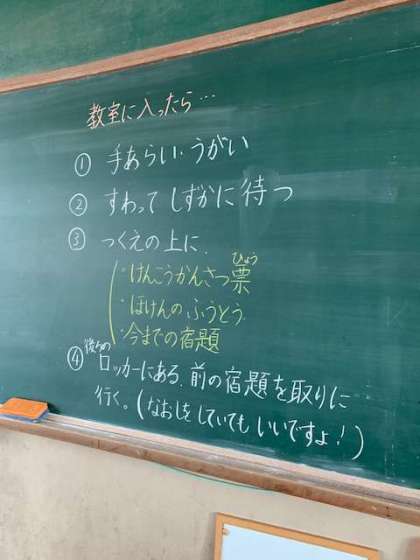 教室に入ったら…
① 手あらい・うがい
② すわって しずかに 待つ
③ つくえの上に、
・けんこうかんさつ票
ひょう
・ほけんのふうとう
・今までの宿題
④ 後ろの ロッカーにある、前の宿題を取りに
行く。(なおしをしていても いいですよ！)